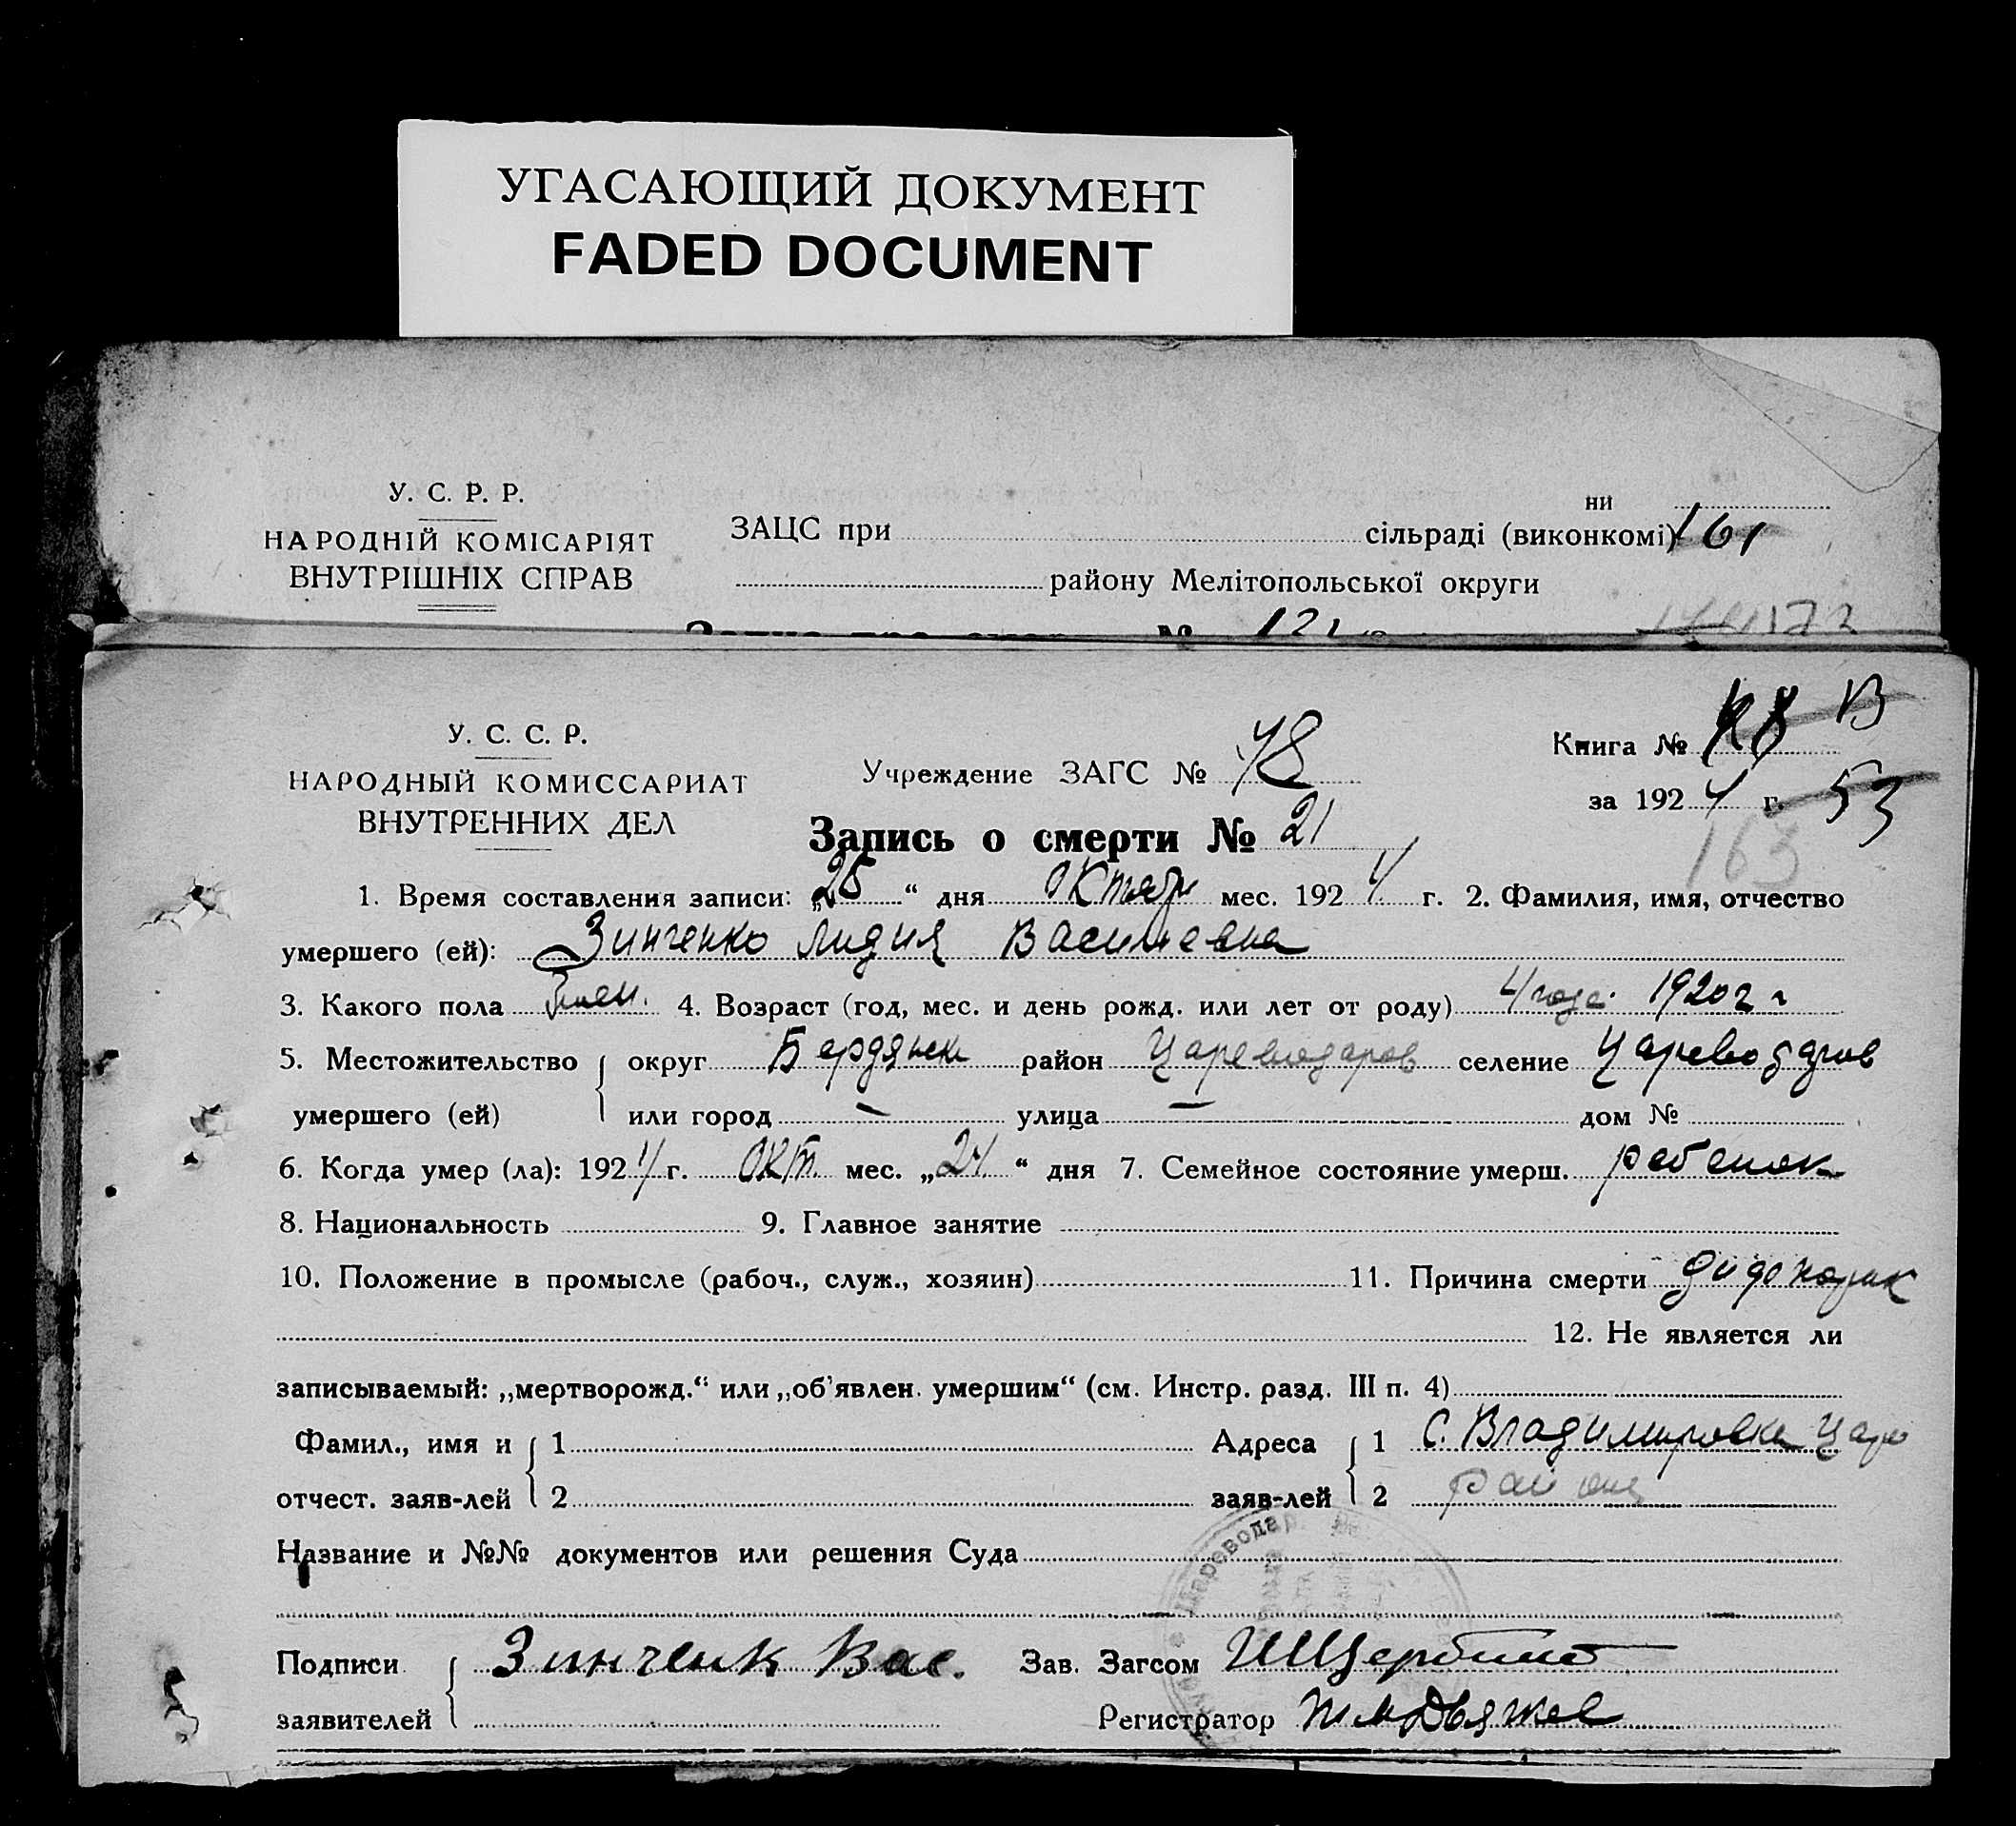 УГАСАЮЩИЙ ДОКУМЕНТ
FADED DOCUMENT
У. С. Р. Р.
НАРОДНІЙ КОМІСАРІЯТ
ВНУТРІШНІХ СПРАВ
ни
ЗАЦС при сільраді (виконкомі) 161
району Мелітопольської округи
121
У. С. С. Р.
НАРОДНЫЙ КОМИССАРИАТ
ВНУТРЕННИХ ДЕЛ
Учреждение ЗАГС № 48
Книга № В
за 1924 г. 53
163
Запись о смерти № 21
1. Время составления записи: „25“ дня Октябр мес. 1924 г. 2. Фамилия, имя, отчество
умершего (ей): Зинченко Лидия Васильевна
3. Какого пола жен. 4. Возраст (год, мес. и день рожд. или лет от роду) 4 года 1920 г
5. Местожительство округ Бердянск район Цареводаров селение Цареводаров
умершего (ей) или город — улица — дом №
6. Когда умер (ла): 1924 г. Окт. мес. „24“ дня 7. Семейное состояние умерш. ребенок
8. Национальность 9. Главное занятие
10. Положение в промысле (рабоч., служ., хозяин) 11. Причина смерти
12. Не является ли
записываемый: „мертворожд.“ или „об'явлен. умершим“ (см. Инстр. разд. III п. 4)
Фамил., имя и 1 Адреса 1 С. Владимировка Царе
отчест. заяв-лей 2 заяв-лей 2 района
Название и №№ документов или решения Суда
Подписи Зинченк Вас. Зав. Загсом
заявителей Регистратор